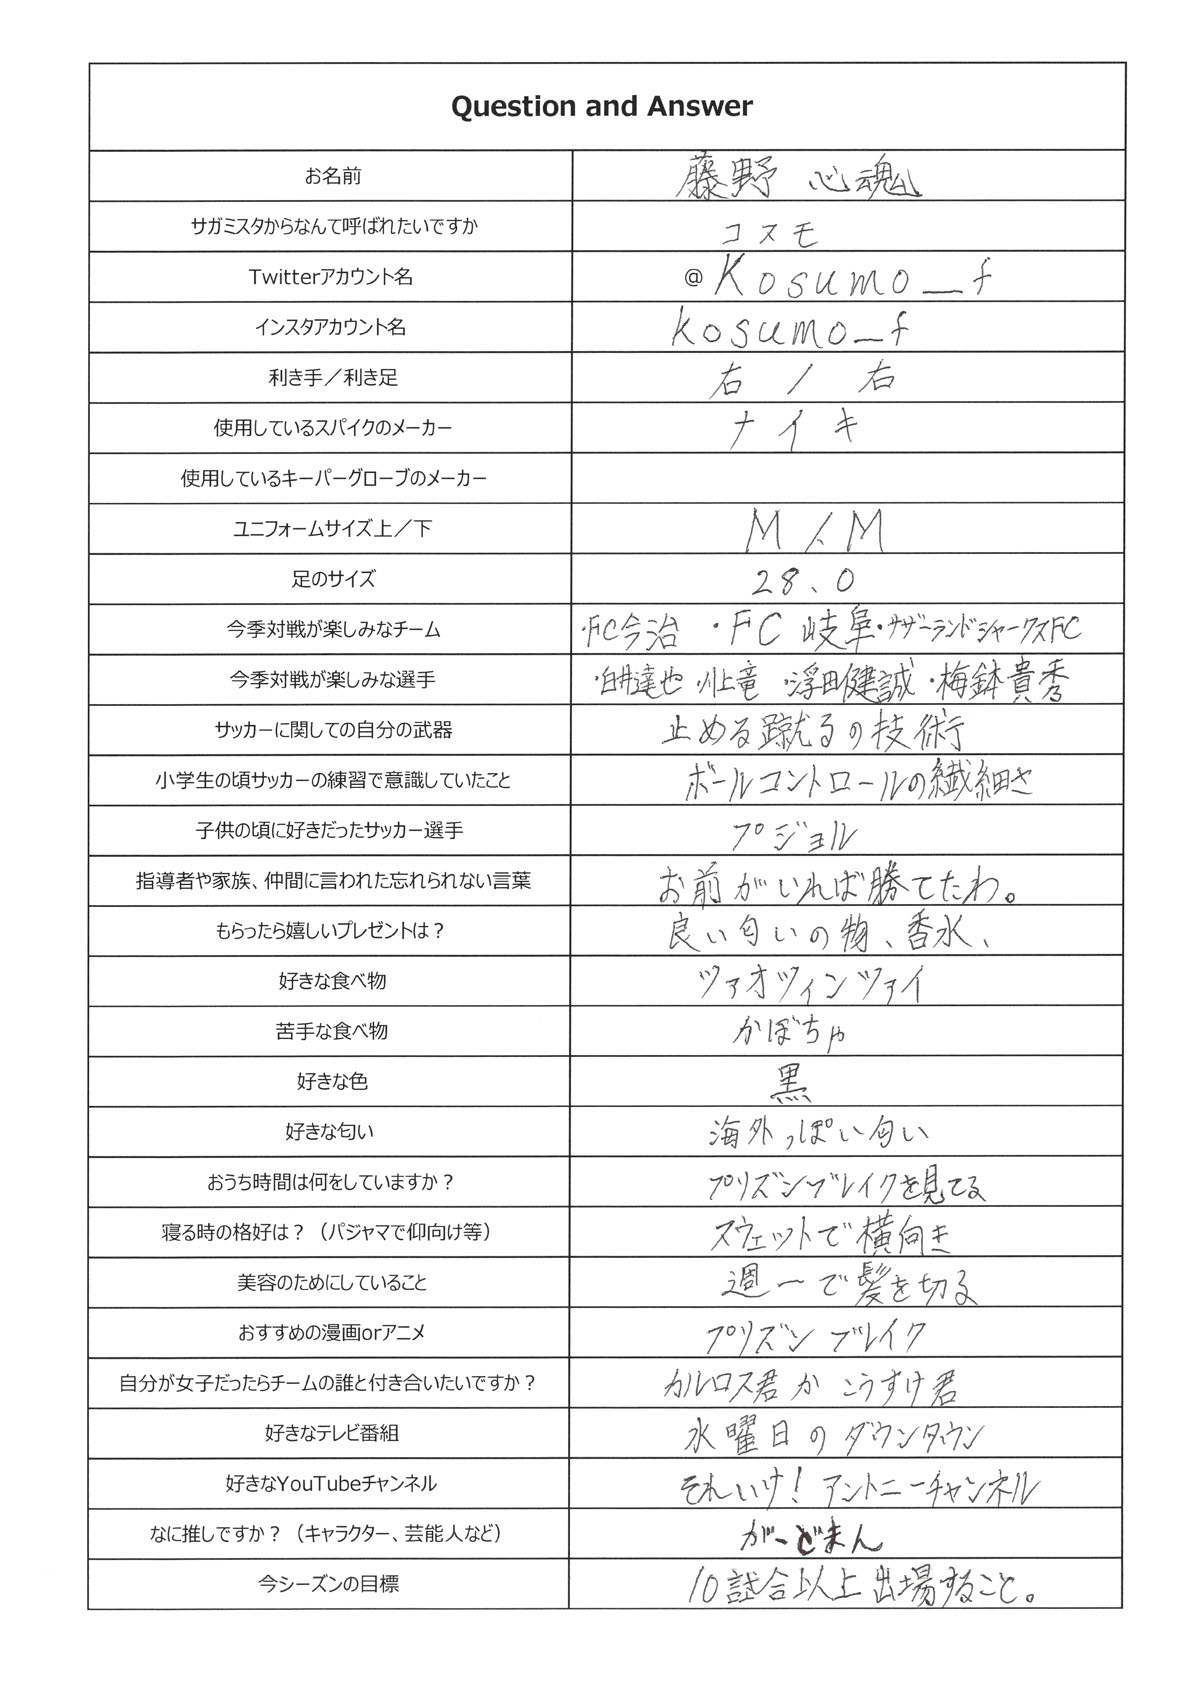 Question and Answer
お名前 藤野 心魂
サガミスタからなんて呼ばれたいですか コスモ
Twitterアカウント名 @Kosumo_f
インスタアカウント名 kosumo_f
利き手／利き足 右 / 右
使用しているスパイクのメーカー ナイキ
使用しているキーパーグローブのメーカー
ユニフォームサイズ上／下 M / M
足のサイズ 28、0
今季対戦が楽しみなチーム ・FC今治 ・FC 岐阜・サザーランドシャークスFC
今季対戦が楽しみな選手 ・白井達也 ・川上竜 ・浮田健誠 ・梅鉢貴秀
サッカーに関しての自分の武器 止める蹴るの技術
小学生の頃サッカーの練習で意識していたこと ボールコントロールの繊細さ
子供の頃に好きだったサッカー選手 プジョル
指導者や家族、仲間に言われた忘れられない言葉 お前がいれば勝てたわ。
もらったら嬉しいプレゼントは？ 良い匂いの物、香水、
好きな食べ物 ツァオツィンツァイ
苦手な食べ物 かぼちゃ
好きな色 黒
好きな匂い 海外っぽい匂い
おうち時間は何をしていますか？ プリズンブレイクを見てる
寝る時の格好は？（パジャマで仰向け等） スウェットで横向き
美容のためにしていること 週一で髪を切る
おすすめの漫画orアニメ プリズン ブレイク
自分が女子だったらチームの誰と付き合いたいですか？ カルロス君か こうすけ君
好きなテレビ番組 水曜日のダウンタウン
好きなYouTubeチャンネル それいけ！アントニーチャンネル
なに推しですか？（キャラクター、芸能人など） がーどまん
今シーズンの目標 10試合以上出場すること。